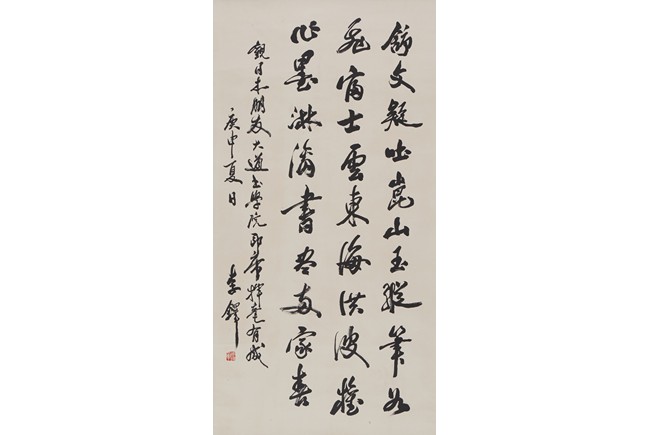 飾文疑吐崑山玉縱筆如
飛富士雲東海洪波權
作墨淋漓書盡兩家春
觀日本朋友大道书學院即席揮毫有感
庚申夏日 李鐸